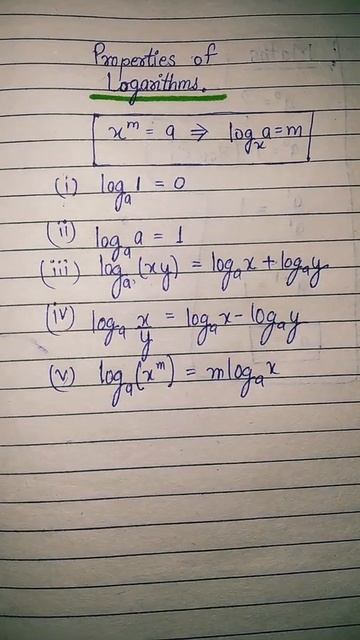 Properties of
Logarithms.
x^m = a ⇒ log_x a = m
(i) log_a 1 = 0
(ii) log_a a = 1
(iii) log_a (xy) = log_a x + log_a y
(iv) log_a x/y = log_a x - log_a y
(v) log_a (x^m) = m log_a x